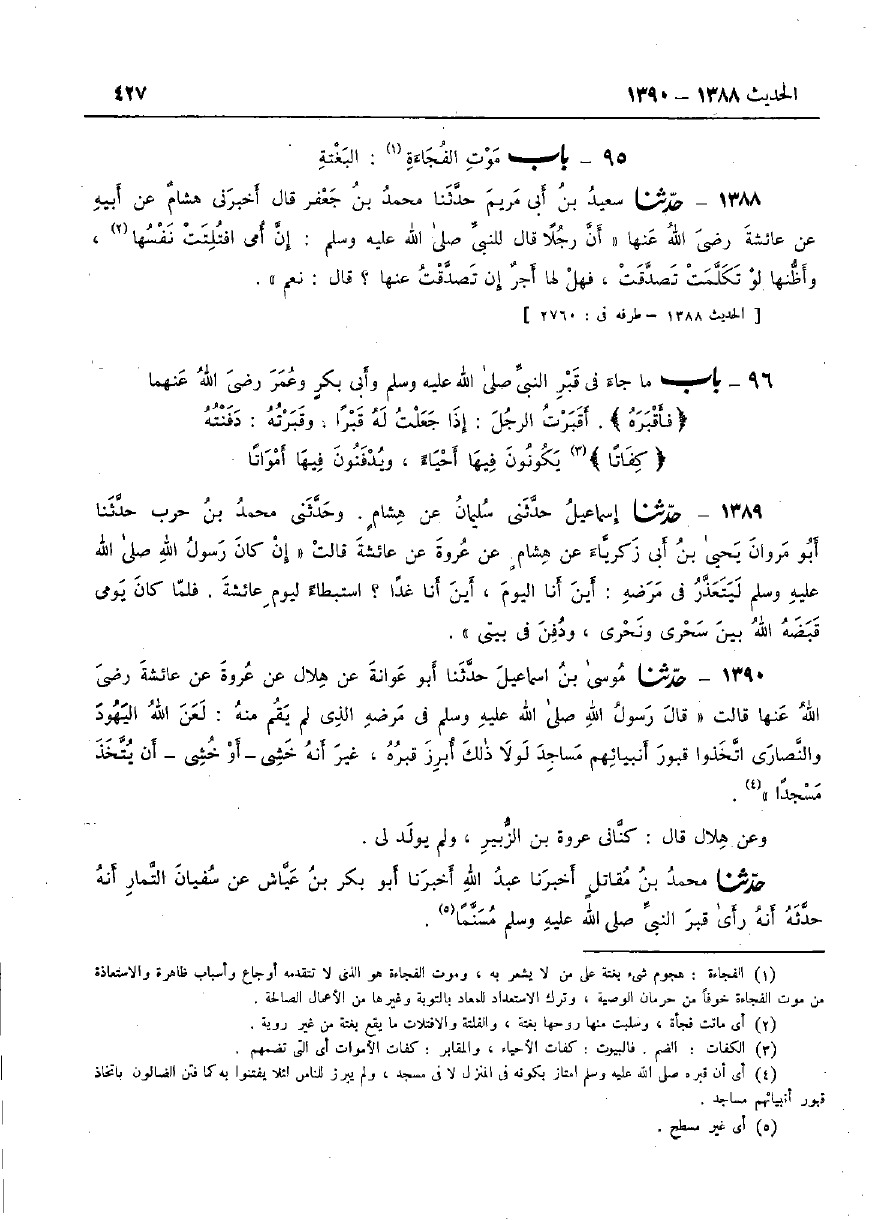 الحديث ١٣٨٨ – ١٣٩٠ ٤٢٧
٩٥ – باب مَوْتِ الفُجَاءَةِ (١) : البَغْتةِ
١٣٨٨ – حدّثنا سعيدُ بنُ أبى مَريمَ حدَّثَنا محمدُ بنُ جَعْفر قال أخبرَنى هشامٌ عن أبيهِ
عن عائشةَ رضىَ اللهُ عَنها « أنَّ رجُلًا قال للنبىِّ صلىٰ الله عليه وسلم : إنَّ أُمى افتُلِتَتْ نَفْسُها (٢) ،
وأظُنها لوْ تَكلَّمَتْ تَصدَّقَتْ ، فهلْ لها أجرٌ إن تَصدَّقْتُ عنها ؟ قال : نعم » .
[ الحديث ١٣٨٨ – طرفه فى : ٢٧٦٠ ]
٩٦ – باب ما جاءَ فى قَبْرِ النبىِّ صلىٰ الله عليه وسلم وأبى بكرٍ وعُمَرَ رضىَ اللهُ عَنهما
﴿ فأَقْبَرَهُ ﴾ . أَقبَرْتُ الرجُلَ : إذَا جَعَلْتُ لَهُ قَبْرًا . وقَبَرْتُهُ : دَفَنْتُهُ
﴿ كِفَاتًا ﴾ (٣) يَكُونُونَ فِيهَا أَحْيَاءً ، ويُدْفَنُونَ فِيهَا أَمْوَاتًا
١٣٨٩ – حدّثنا إسماعيلُ حدَّثَنى سُليمانُ عن هِشامٍ . وحَدَّثَنى محمدُ بنُ حربٍ حدَّثَنا
أبُو مَروانَ يَحيىٰ بنُ أبى زَكريَّاءَ عن هِشامٍ عن عُروةَ عن عائشةَ قالتْ « إنْ كانَ رَسولُ اللهِ صلىٰ الله
عليهِ وسلم لَيَتَعَذَّرُ فى مَرَضهِ : أينَ أنا اليومَ ، أينَ أنا غدًا ؟ استبطاءً ليومِ عائشةَ . فلمّا كانَ يَومى
قَبَضَهُ اللهُ بينَ سَحْرى ونَحْرى ، ودُفِنَ فى بيتى » .
١٣٩٠ – حدّثنا مُوسىٰ بنُ اسماعيلَ حدَّثَنا أبو عَوانةَ عن هِلال عن عُروةَ عن عائشةَ رضىَ
اللهُ عَنها قالت « قالَ رَسولُ اللهِ صلىٰ الله عليهِ وسلم فى مَرضهِ الذِى لم يَقُم منهُ : لَعَنَ اللهُ اليَهُودَ
والنَّصارَى اتَّخَذوا قبورَ أنبيائِهم مَساجِدَ لَولَا ذٰلكَ أُبرِزَ قبرُهُ ، غيرَ أنهُ خَشِى – أوْ خُشِى – أن يُتَّخَذَ
مَسْجدًا » (٤) .
وعن هِلال قال : كنَّانى عروة بن الزُّبيرِ ، ولم يولَد لى .
حدّثنا محمدُ بنُ مُقاتلٍ أخبرَنا عبدُ اللهِ أخبرَنا أبو بكر بنُ عَيَّاش عن سُفيانَ التَّمارِ أنهُ
حدَّثَهُ أنهُ رأىٰ قبرَ النبىِّ صلى الله عليهِ وسلم مُسَنَّمًا (٥) .
(١) الفجاءة : هجوم شىء بغتة على من لا يشعر به ، وموت الفجاءة هو الذى لا تتقدمه أوجاع وأسباب ظاهرة والاستعاذة
من موت الفجاءة خوفاً من حرمان الوصية ، وترك الاستعداد للمعاد بالتوبة وغيرها من الأعمال الصالحة .
(٢) أى ماتت فجأة ، وسلبت منها روحها بغتة ، والفلتة والافتلات ما يقع بغتة من غير روية .
(٣) الكفات : الضم . فالبيوت : كفات الأحياء ، والمقابر : كفات الأموات أى التى تضمهم .
(٤) أى أن قبره صلى الله عليه وسلم امتاز بكونه فى المنزل لا فى مسجد ، ولم يبرز للناس لئلا يفتنوا به كما فتن الضالون باتخاذ
قبور أنبيائهم مساجد .
(٥) أى غير مسطح .